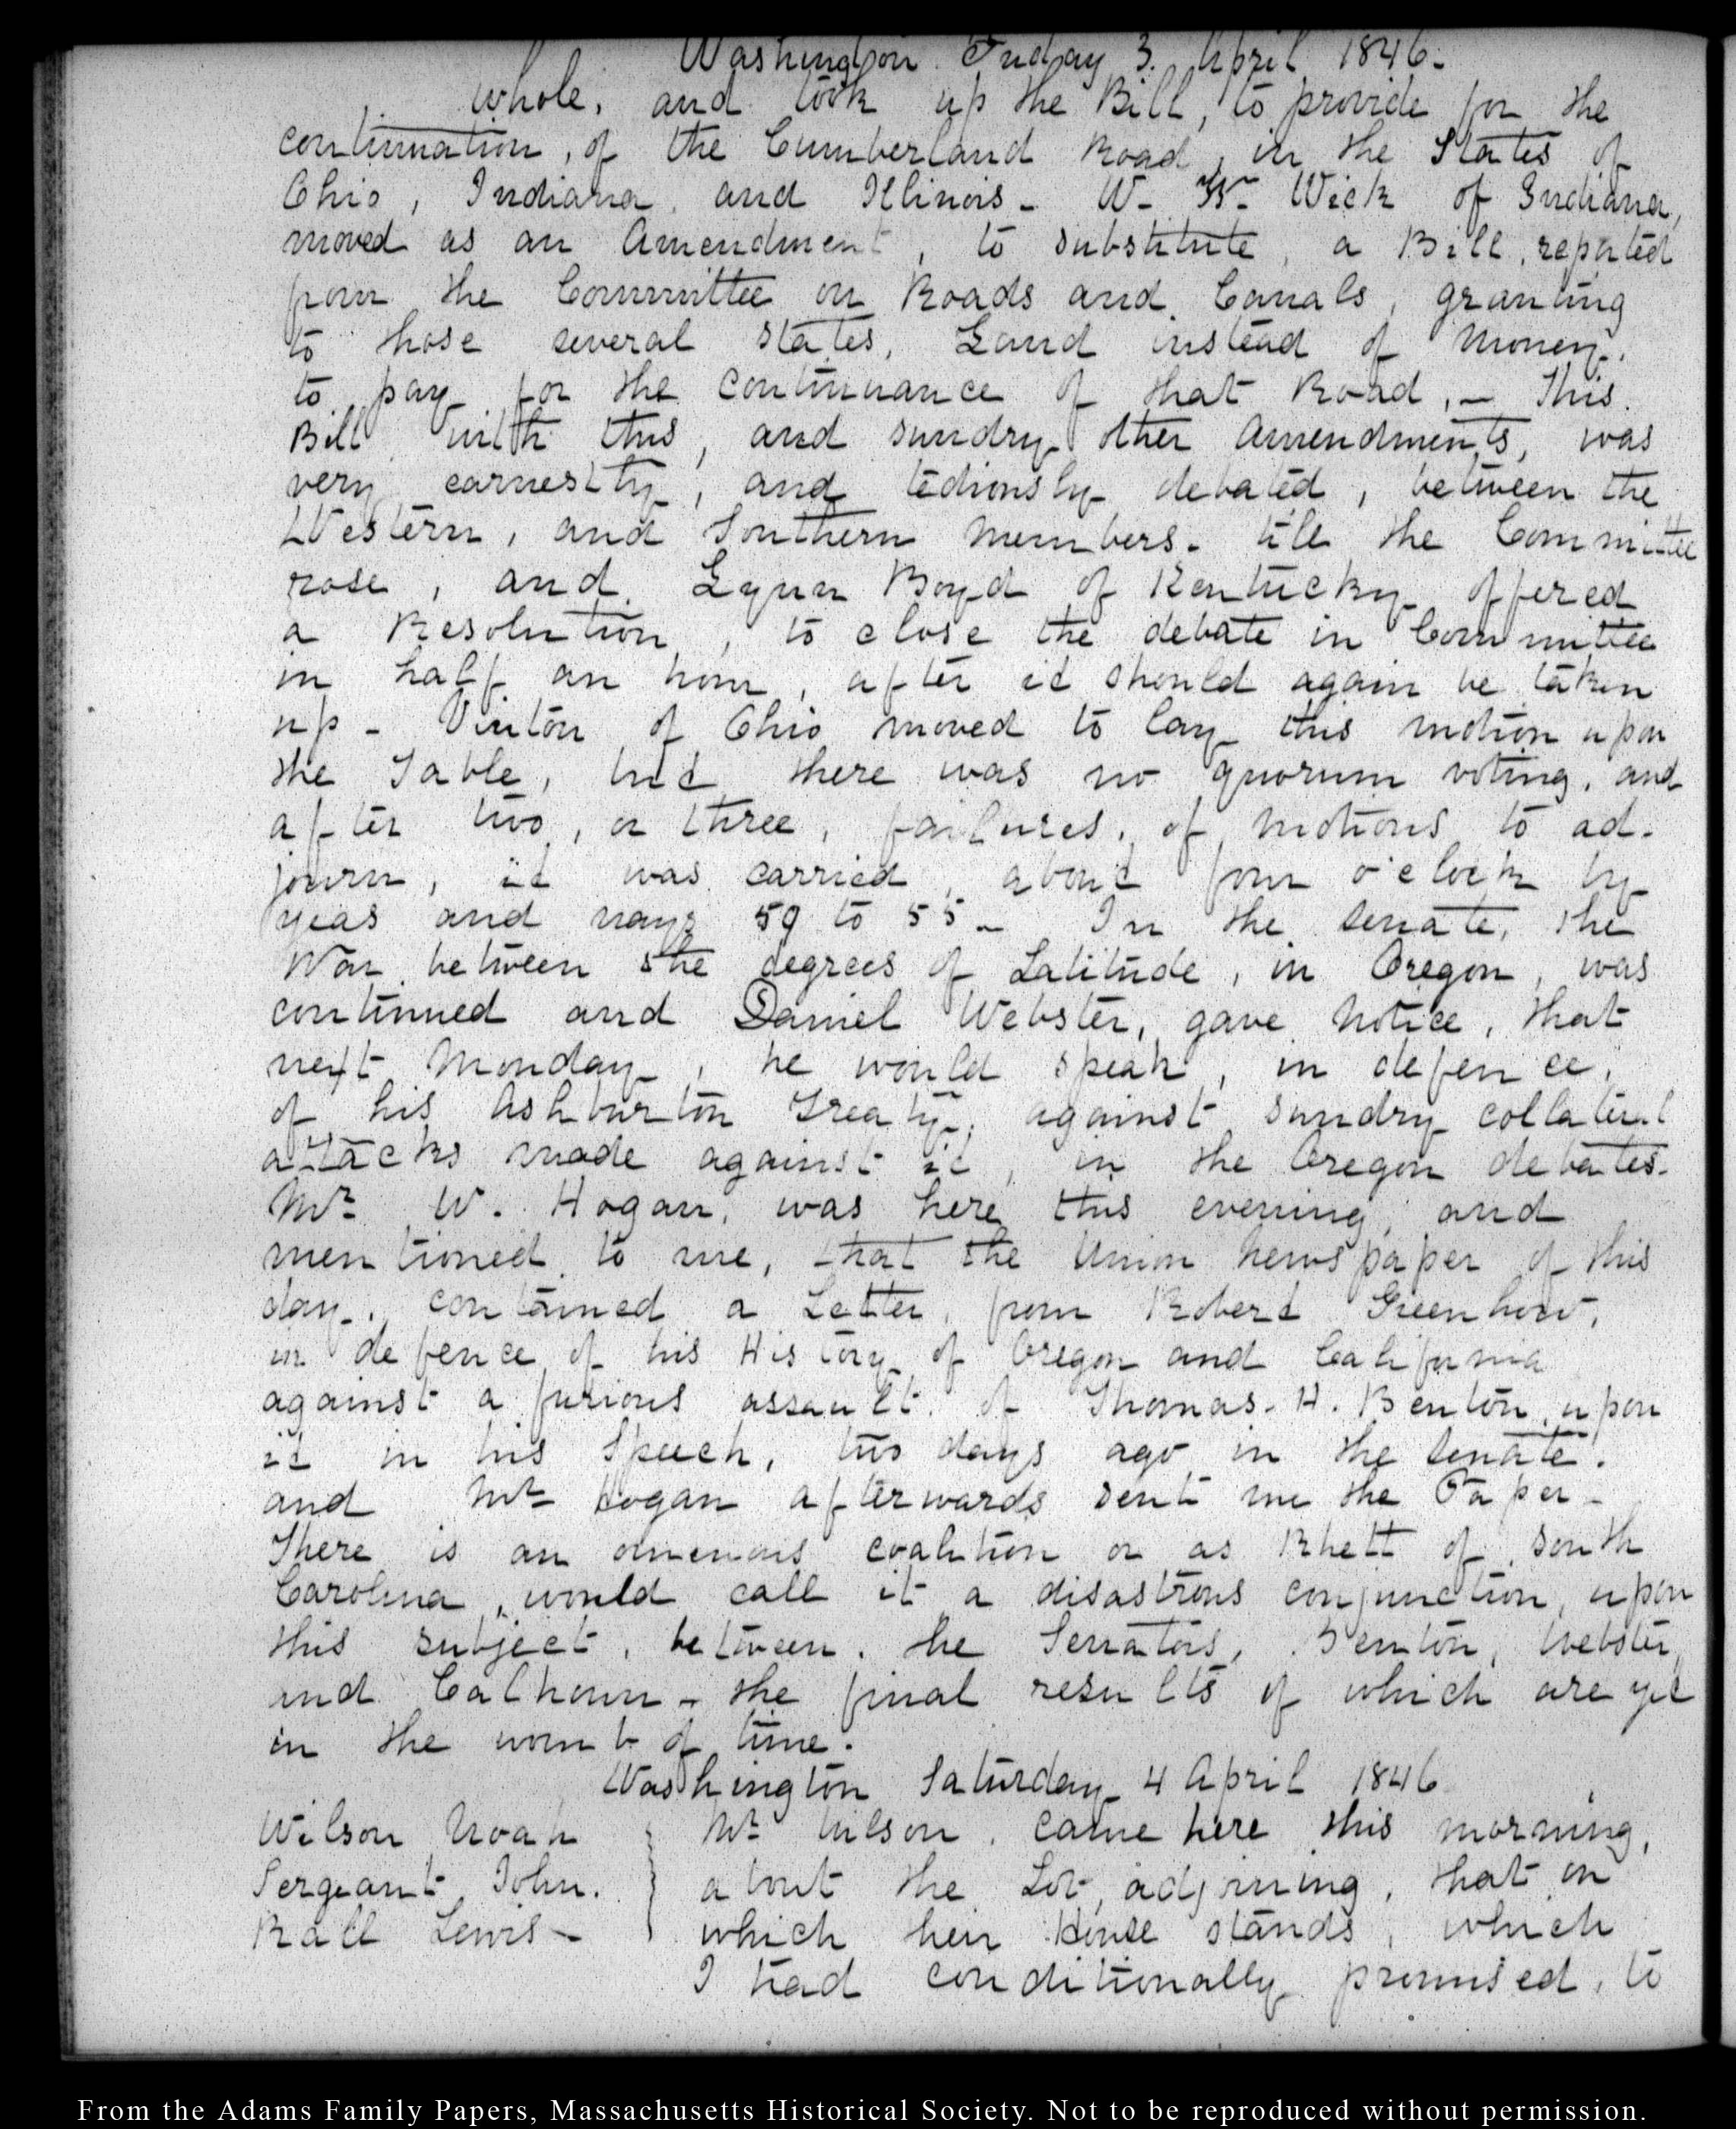 Washington Friday 3. April 1846.
whole, and took up the Bill, to provide for the
continuation, of the Cumberland Road, in the States of
Ohio, Indiana, and Illinois - W. W. Wick of Indiana,
moved as an Amendment, to substitute, a Bill, reported
from the Committee on Roads and Canals, granting
to those several states, Land instead of Money,
to pay for the continuance of that Road, - This
Bill with this, and sundry other Amendments, was
very earnestly, and tediously debated, between the
Western, and Southern Members. till the Committee
rose, and Lynn Boyd of Kentucky offered
a Resolution, to close the debate in Committee
in half an hour, after it should again be taken
up - Vinton of Ohio moved to lay this motion upon
the Table, but there was no quorum voting, and
after two, or three, failures, of motions to ad-
journ, it was carried, about four o'clock by
yeas and nays 59 to 55 - In the Senate, the
War between the degrees of Latitude, in Oregon, was
continued and Daniel Webster, gave Notice, that
next Monday, he would speak, in defence,
of his Ashburton Treaty, against sundry collateral
attacks made against it, in the Oregon debates.
Mr. W. Hogan, was here this evening, and
mentioned to me, that the Union Newspaper of this
day, contained a Letter, from Robert Greenhow,
in defence of his History of Oregon and California
against a furious assault of Thomas. H. Benton upon
it in his Speech, two days ago in the Senate.
and Mr Hogan afterwards sent me the Paper -
There is an omenous coalition or as Rhett of South
Carolina, would call it a disastrous conjunction, upon
this subject, between, the Senators, Benton, Webster
and Calhoun - the final results of which are yet
in the womb of time.
Washington Saturday 4 April 1846
Wilson Noah
Sergeant John.
Ball Lewis -
Mr Wilson, came here this morning,
about the Lot, adjoining, that on
which her House stands, which
I had conditionally promised, to
From the Adams Family Papers, Massachusetts Historical Society. Not to be reproduced without permission.